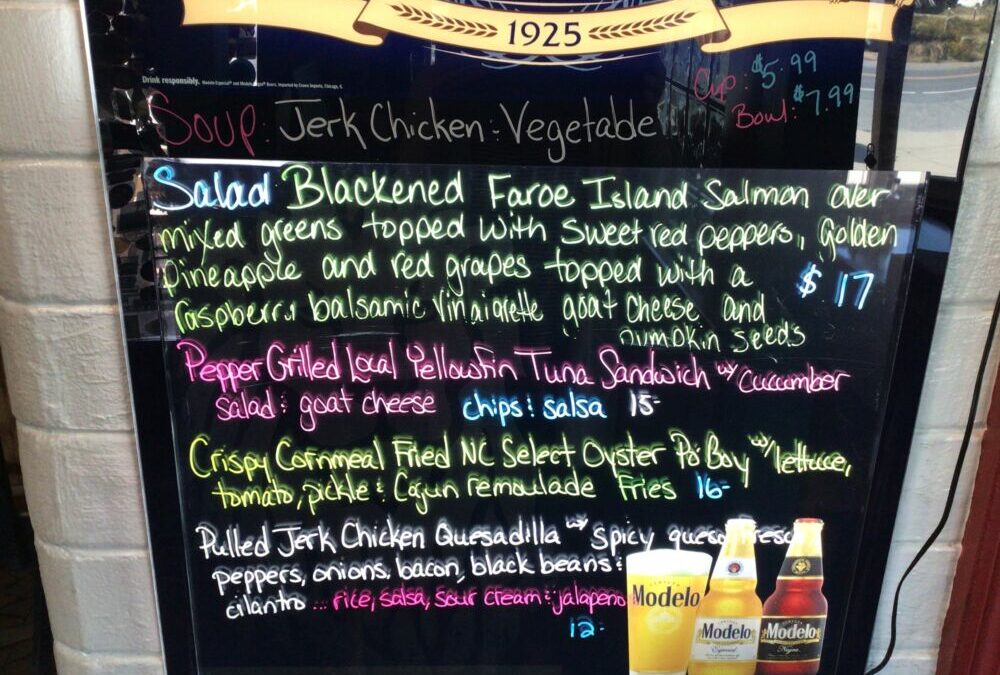 1925
Drink responsibly.
Cup: $5.99
Soup: Jerk Chicken : Vegetable
Bowl: $7.99
Salad Blackened Faroe Island Salmon over
mixed greens topped with sweet red peppers, Golden
Pineapple and red grapes topped with a
$17
raspberry balsamic vinaigrette goat cheese and
pumpkin seeds
Pepper Grilled Local Yellowfin Tuna Sandwich w/ cucumber
salad : goat cheese chips : salsa 15-
Crispy Cornmeal Fried NC Select Oyster Po Boy w/ lettuce,
tomato, pickle : Cajun remoulade Fries 16-
Pulled Jerk Chicken Quesadilla w/ spicy queso fresco
peppers, onions, bacon, black beans :
cilantro ... rice, salsa, sour cream : jalapeno
12-
Modelo
Modelo
Especial
Modelo
Negra